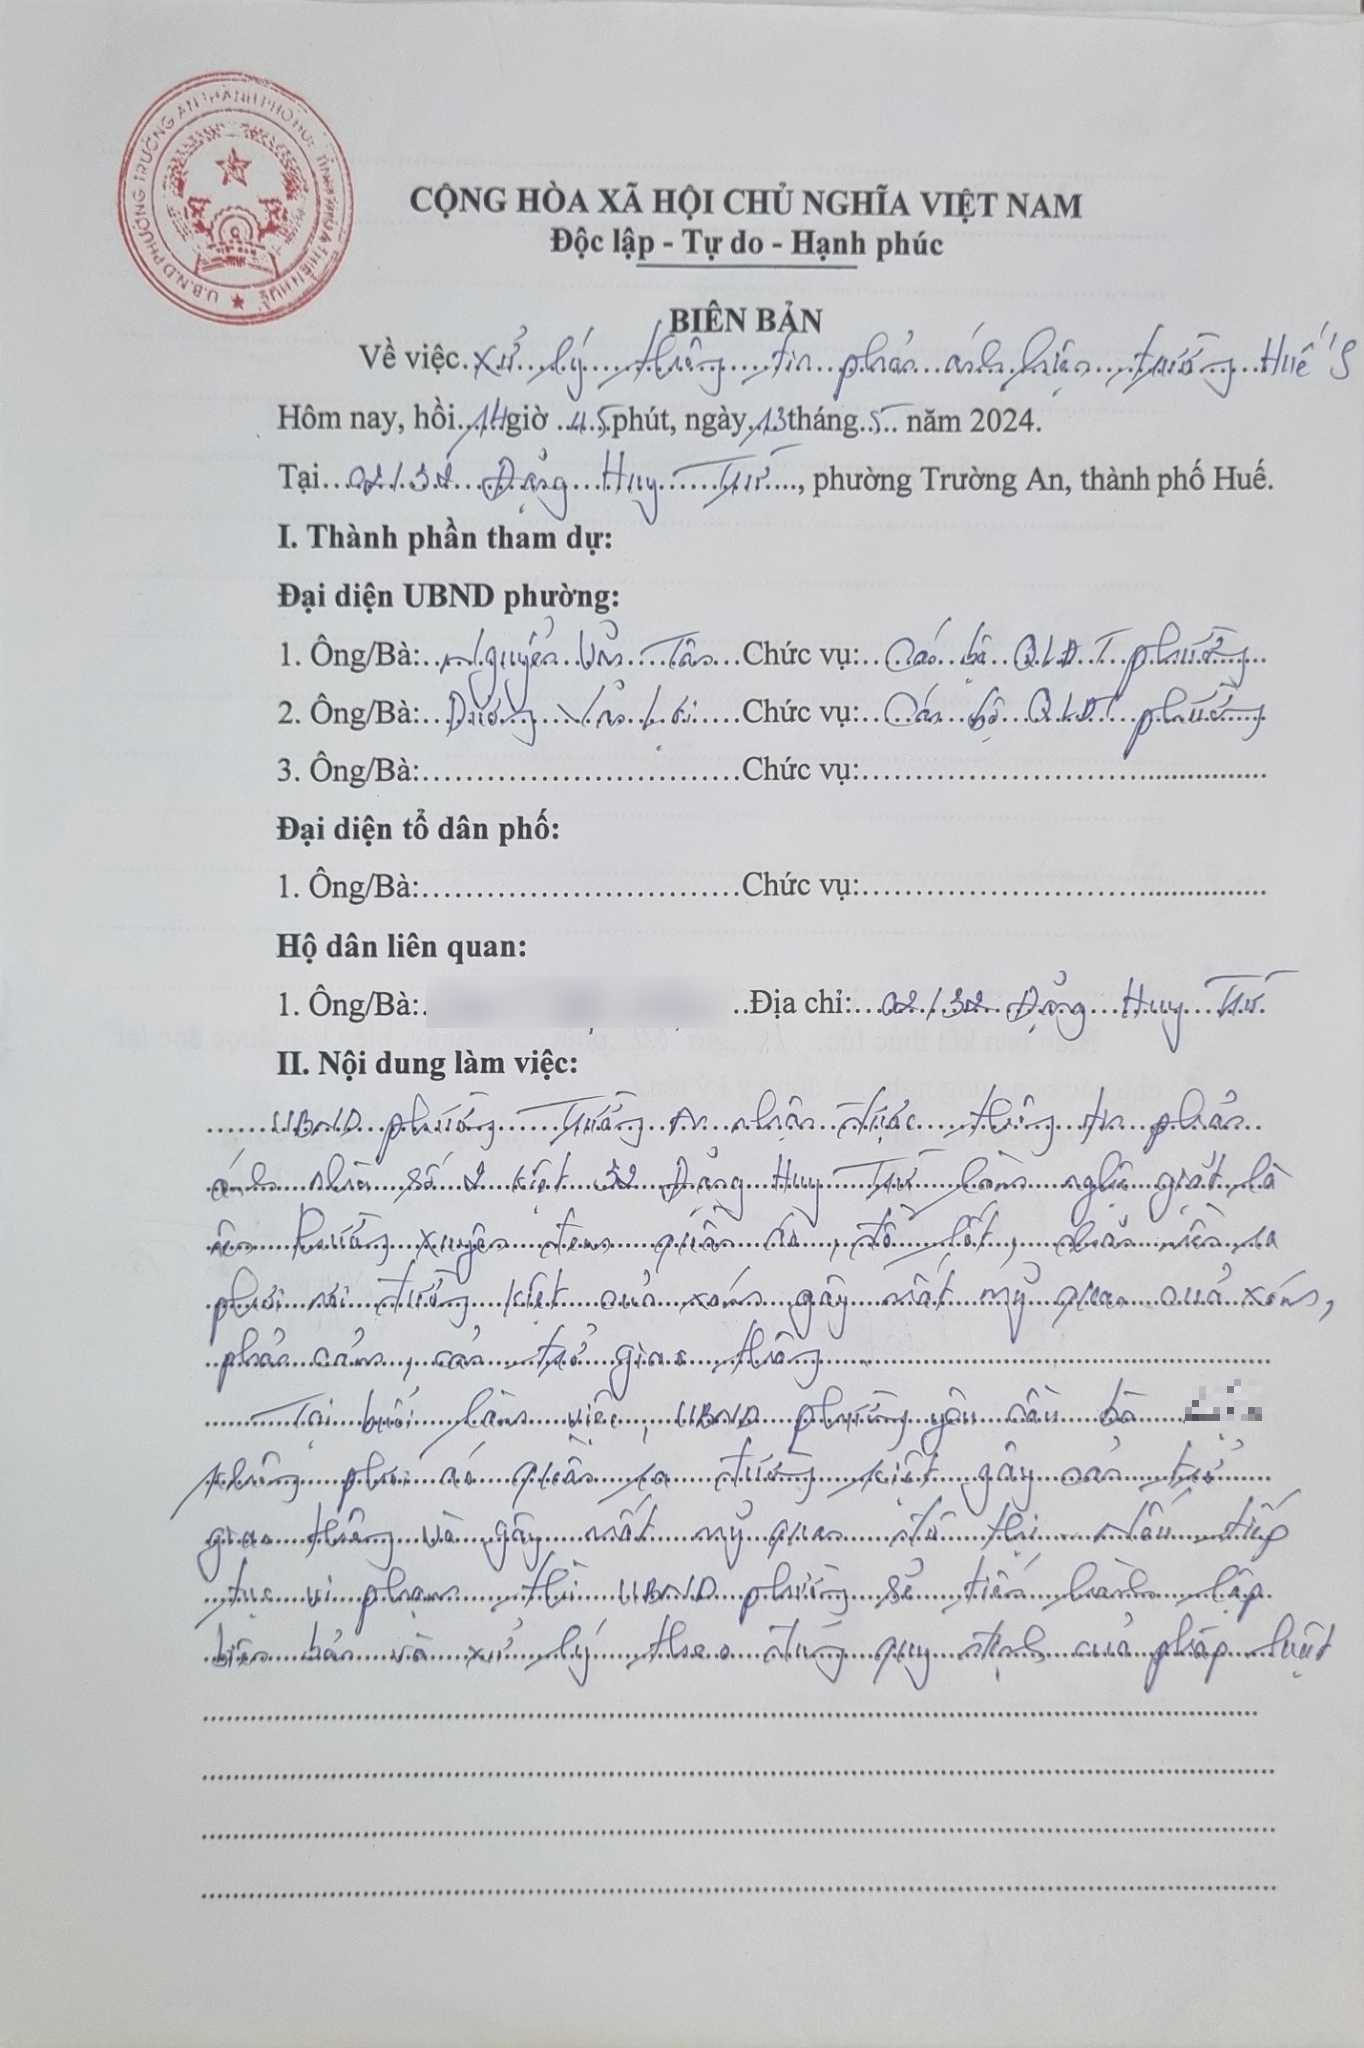 U.B.N.D PHƯỜNG TRƯỜNG AN THÀNH PHỐ HUẾ TỈNH THỪA THIÊN HUẾ
CỘNG HÒA XÃ HỘI CHỦ NGHĨA VIỆT NAM
Độc lập - Tự do - Hạnh phúc
BIÊN BẢN
Về việc xử lý thông tin phản ánh hiện trường Huế'S
Hôm nay, hồi 14 giờ 45 phút, ngày 13 tháng 5 năm 2024.
Tại 02/32 Đặng Huy Trứ, phường Trường An, thành phố Huế.
I. Thành phần tham dự:
Đại diện UBND phường:
1. Ông/Bà: Nguyễn Văn Tân Chức vụ: Cán bộ QLĐT phường
2. Ông/Bà: Dương Văn Lợi Chức vụ: Cán bộ QLĐT phường
3. Ông/Bà: Chức vụ:
Đại diện tổ dân phố:
1. Ông/Bà: Chức vụ:
Hộ dân liên quan:
1. Ông/Bà: Địa chỉ: 02/32 Đặng Huy Trứ
II. Nội dung làm việc:
UBND phường Trường An nhận được thông tin phản
ánh nhà số 2 kiệt 32 Đặng Huy Trứ làm nghề giặt là
nên thường xuyên đem quần áo, đồ lót, chăn mền ra
phơi nơi đường kiệt của xóm gây mất mỹ quan của xóm,
phản cảm, cản trở giao thông
Tại buổi làm việc, UBND phường yêu cầu bà
không phơi áo quần ra đường kiệt gây cản trở
giao thông và gây mất mỹ quan đô thị. Nếu tiếp
tục vi phạm thì UBND phường sẽ tiến hành lập
biên bản và xử lý theo đúng quy định của pháp luật